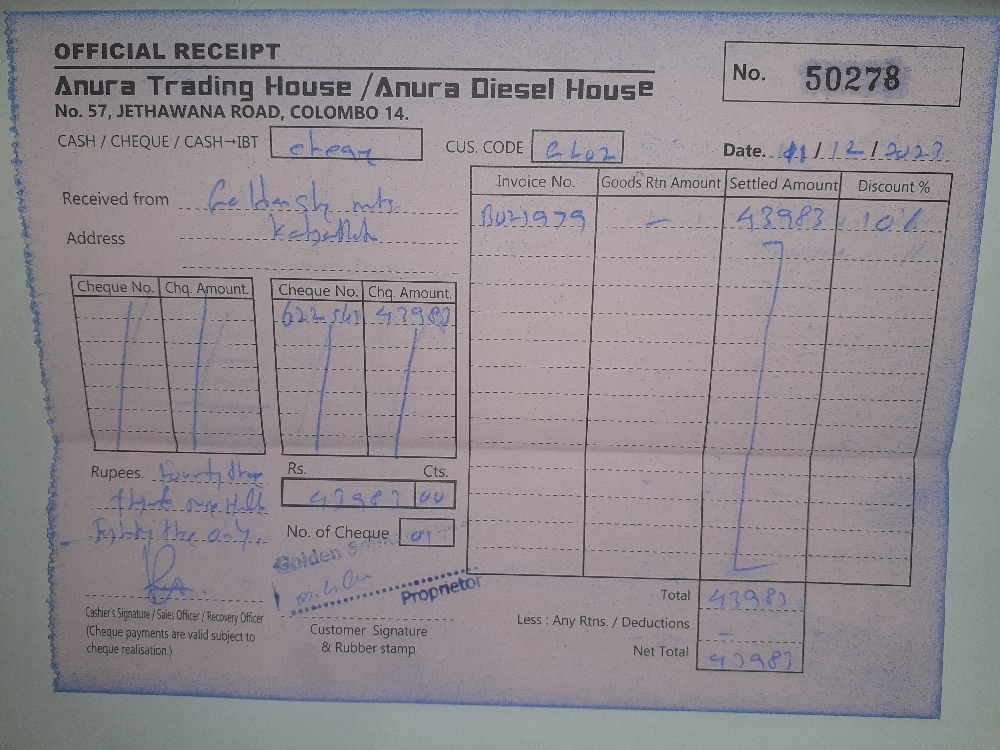 OFFICIAL RECEIPT
Anura Trading House /Anura Diesel House
No. 57, JETHAWANA ROAD, COLOMBO 14.
No. 50278
CASH / CHEQUE / CASH→IBT
CUS. CODE
Date. 11/12/2023
Received from
Address
Invoice No. Goods Rtn Amount Settled Amount Discount %
B021979 — 43983 10%
Cheque No. Chq. Amount. Cheque No. Chq. Amount.
43983
Rupees. Fourty three
Rs. Cts.
43983 00
No. of Cheque 01
Golden
Proprietor
Cashier's Signature / Sales Officer / Recovery Officer
(Cheque payments are valid subject to
cheque realisation.)
Customer Signature
& Rubber stamp
Total 43983
Less : Any Rtns. / Deductions –
Net Total 43983